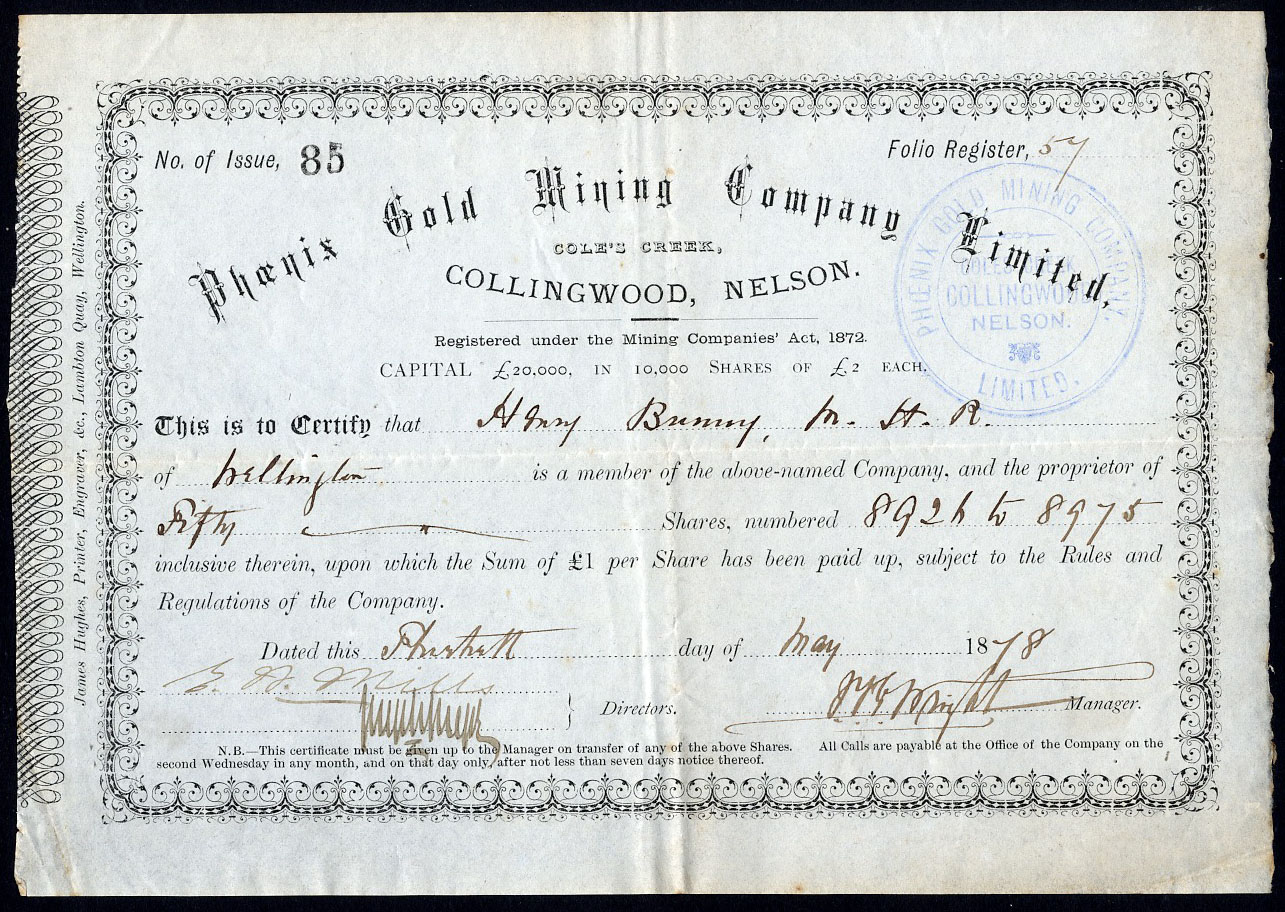 No. of Issue, 85
Folio Register, 57
Phœnix Gold Mining Company Limited,
COLE'S CREEK,
COLLINGWOOD, NELSON.
Registered under the Mining Companies' Act, 1872.
CAPITAL £20,000, IN 10,000 SHARES OF £2 EACH.
PHŒNIX GOLD MINING COMPANY,
COLES CREEK
COLLINGWOOD
NELSON.
LIMITED.
This is to Certify that Henry Bunny, M. H. R.
of Wellington is a member of the above-named Company, and the proprietor of
Fifty Shares, numbered 8926 to 8975
inclusive therein, upon which the Sum of £1 per Share has been paid up, subject to the Rules and
Regulations of the Company.
Dated this day of May 1878
E. W. Mills
Directors. Wright Manager.
N.B.—This certificate must be given up to the Manager on transfer of any of the above Shares. All Calls are payable at the Office of the Company on the
second Wednesday in any month, and on that day only, after not less than seven days notice thereof.
James Hughes, Printer, Engraver, &c., Lambton Quay, Wellington.